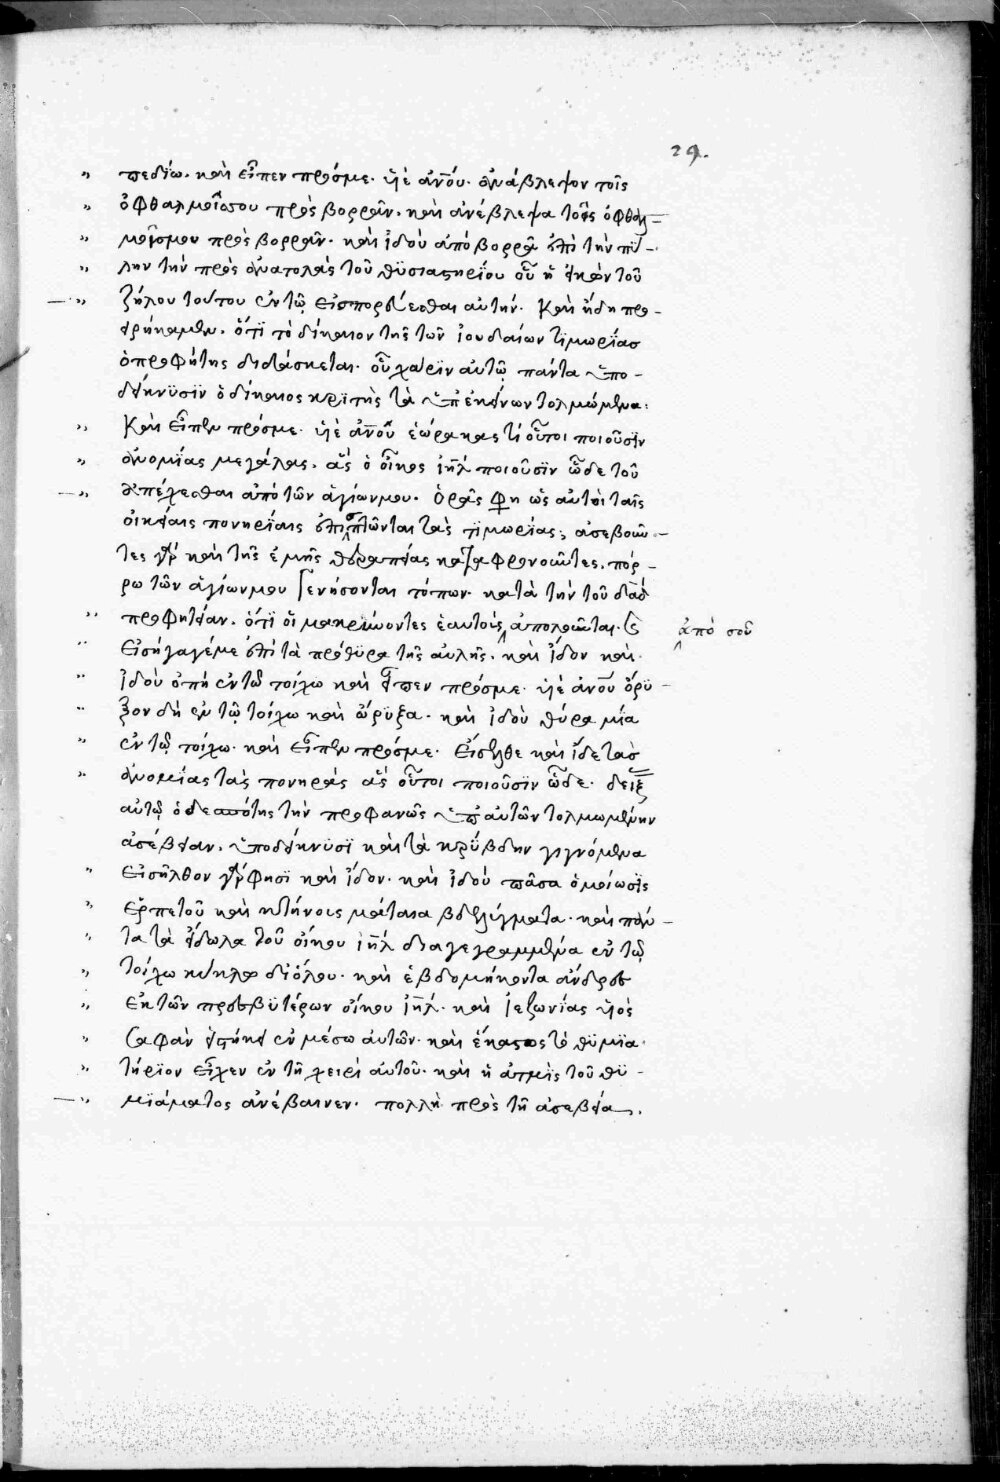 29.
πεδίω. καὶ εἶπεν πρόσμε. υἱὲ ἀνου. ἀνάβλεψον τοῖς
ὀφθαλμοῖσσου πρὸς βορρᾶν. καὶ ἀνέβλεψα τοῖς ὀφθαλ
μοῖσμου πρὸς βορρᾶν. καὶ ἰδοὺ ἀπὸ βορρᾶ ἐπὶ τὴν πύ-
λην τὴν πρὸς ἀνατολὰς τοῦ θϋσιαστηρίου οὗ ἡ εἰκὼν τοῦ
ζήλου τούτου ἐν τῶ εἰσπορεύεσθαι αὐτήν. Καὶ ἤδη προ-
ειρήκαμεν. ὅτϊ τὸ δίκαιον τῆς τῶν ἰουδαίων τϊμωρίας
ὁ προφήτης διδάσκεται. οὗ χάρϊν αὐτῶ πάντα ὑπο-
δείκνϋσϊν ὁ δίκαιος κρϊτὴς τὰ ὑπ' ἐκείνων τολμώμενα.
Καὶ εἶπεν πρόσμε. υἱὲ ἀνου ἑώρακας τί οὗτοι ποιοῦσϊν
ἀνομίας μεγάλας. ἃς ὁ οἶκος ιηλ ποιοῦσϊν ὧδε τοῦ
ἀπέχεσθαι ἀπὸ τῶν ἁγίωνμου. ὁρᾷς φη ὡς αὐτοὶ ταῖς
οἰκείαις πονηρίαις ἐπισπῶνται τὰς τϊμωρίας; ἀσεβοῦν-
τες γὰρ καὶ τῆς ἐμῆς θεραπείας καταφρονοῦντες. πόρ-
ρω τῶν ἁγίωνμου γενήσονται τόπων. κατὰ τὴν τοῦ δαδ
προφητείαν. ὅτϊ οἱ μακρύνοντες ἑαυτοὺς ἀπολοῦνται. ἀπὸ σοῦ
εἰσήγαγέμε ἐπὶ τὰ πρόθϋρα τῆς αὐλῆς. καὶ ἴδον καὶ
ἰδοὺ ὀπὴ ἐν τῶ τοίχω καὶ εἶπεν πρόσμε. υἱὲ ἀνου ὄρϋ-
ξον δὴ ἐν τῶ τοίχω καὶ ὤρυξα. καὶ ἰδοὺ θύρα μία
ἐν τῶ τοίχω. καὶ εἶπεν πρόσμε. εἴσελθε καὶ ἴδε τὰς
ἀνομίας τὰς πονηρὰς ἃς οὗτοι ποιοῦσϊν ὧδε. δείξας
αὐτῶ ὁ δεσπότης τὴν προφανῶς ὑπ' αὐτῶν τολμωμένην
ἀσέβειαν. ὑποδείκνυσι καὶ τὰ κρύβδην γιγνόμενα
εἰσῆλθον γὰρ φησϊ καὶ ἴδον. καὶ ἰδοὺ πᾶσα ὁμοίωσϊς
ἑρπετοῦ καὶ κτήνους μάταια βδελύγματα. καὶ πάν-
τα τὰ εἴδωλα τοῦ οἴκου ιηλ διαγεγραμμένα ἐν τῶ
τοίχω κύκλω διόλου. καὶ ἑβδομήκοντα ἄνδρες
ἐκ τῶν πρεσβϋτέρων οἴκου ιηλ. καὶ ἰεζονίας υἱὸς
Σαφὰν εἱστήκει ἐν μέσω αὐτῶν. καὶ ἕκαστος τὸ θϋμϊα-
τήρϊον εἶχεν ἐν τῆ χειρὶ αὐτοῦ. καὶ ἡ ἀτμὶς τοῦ θϋ-
μϊάματος ἀνέβαινεν. πολλὴ πρὸς τῆ ἀσεβεία.